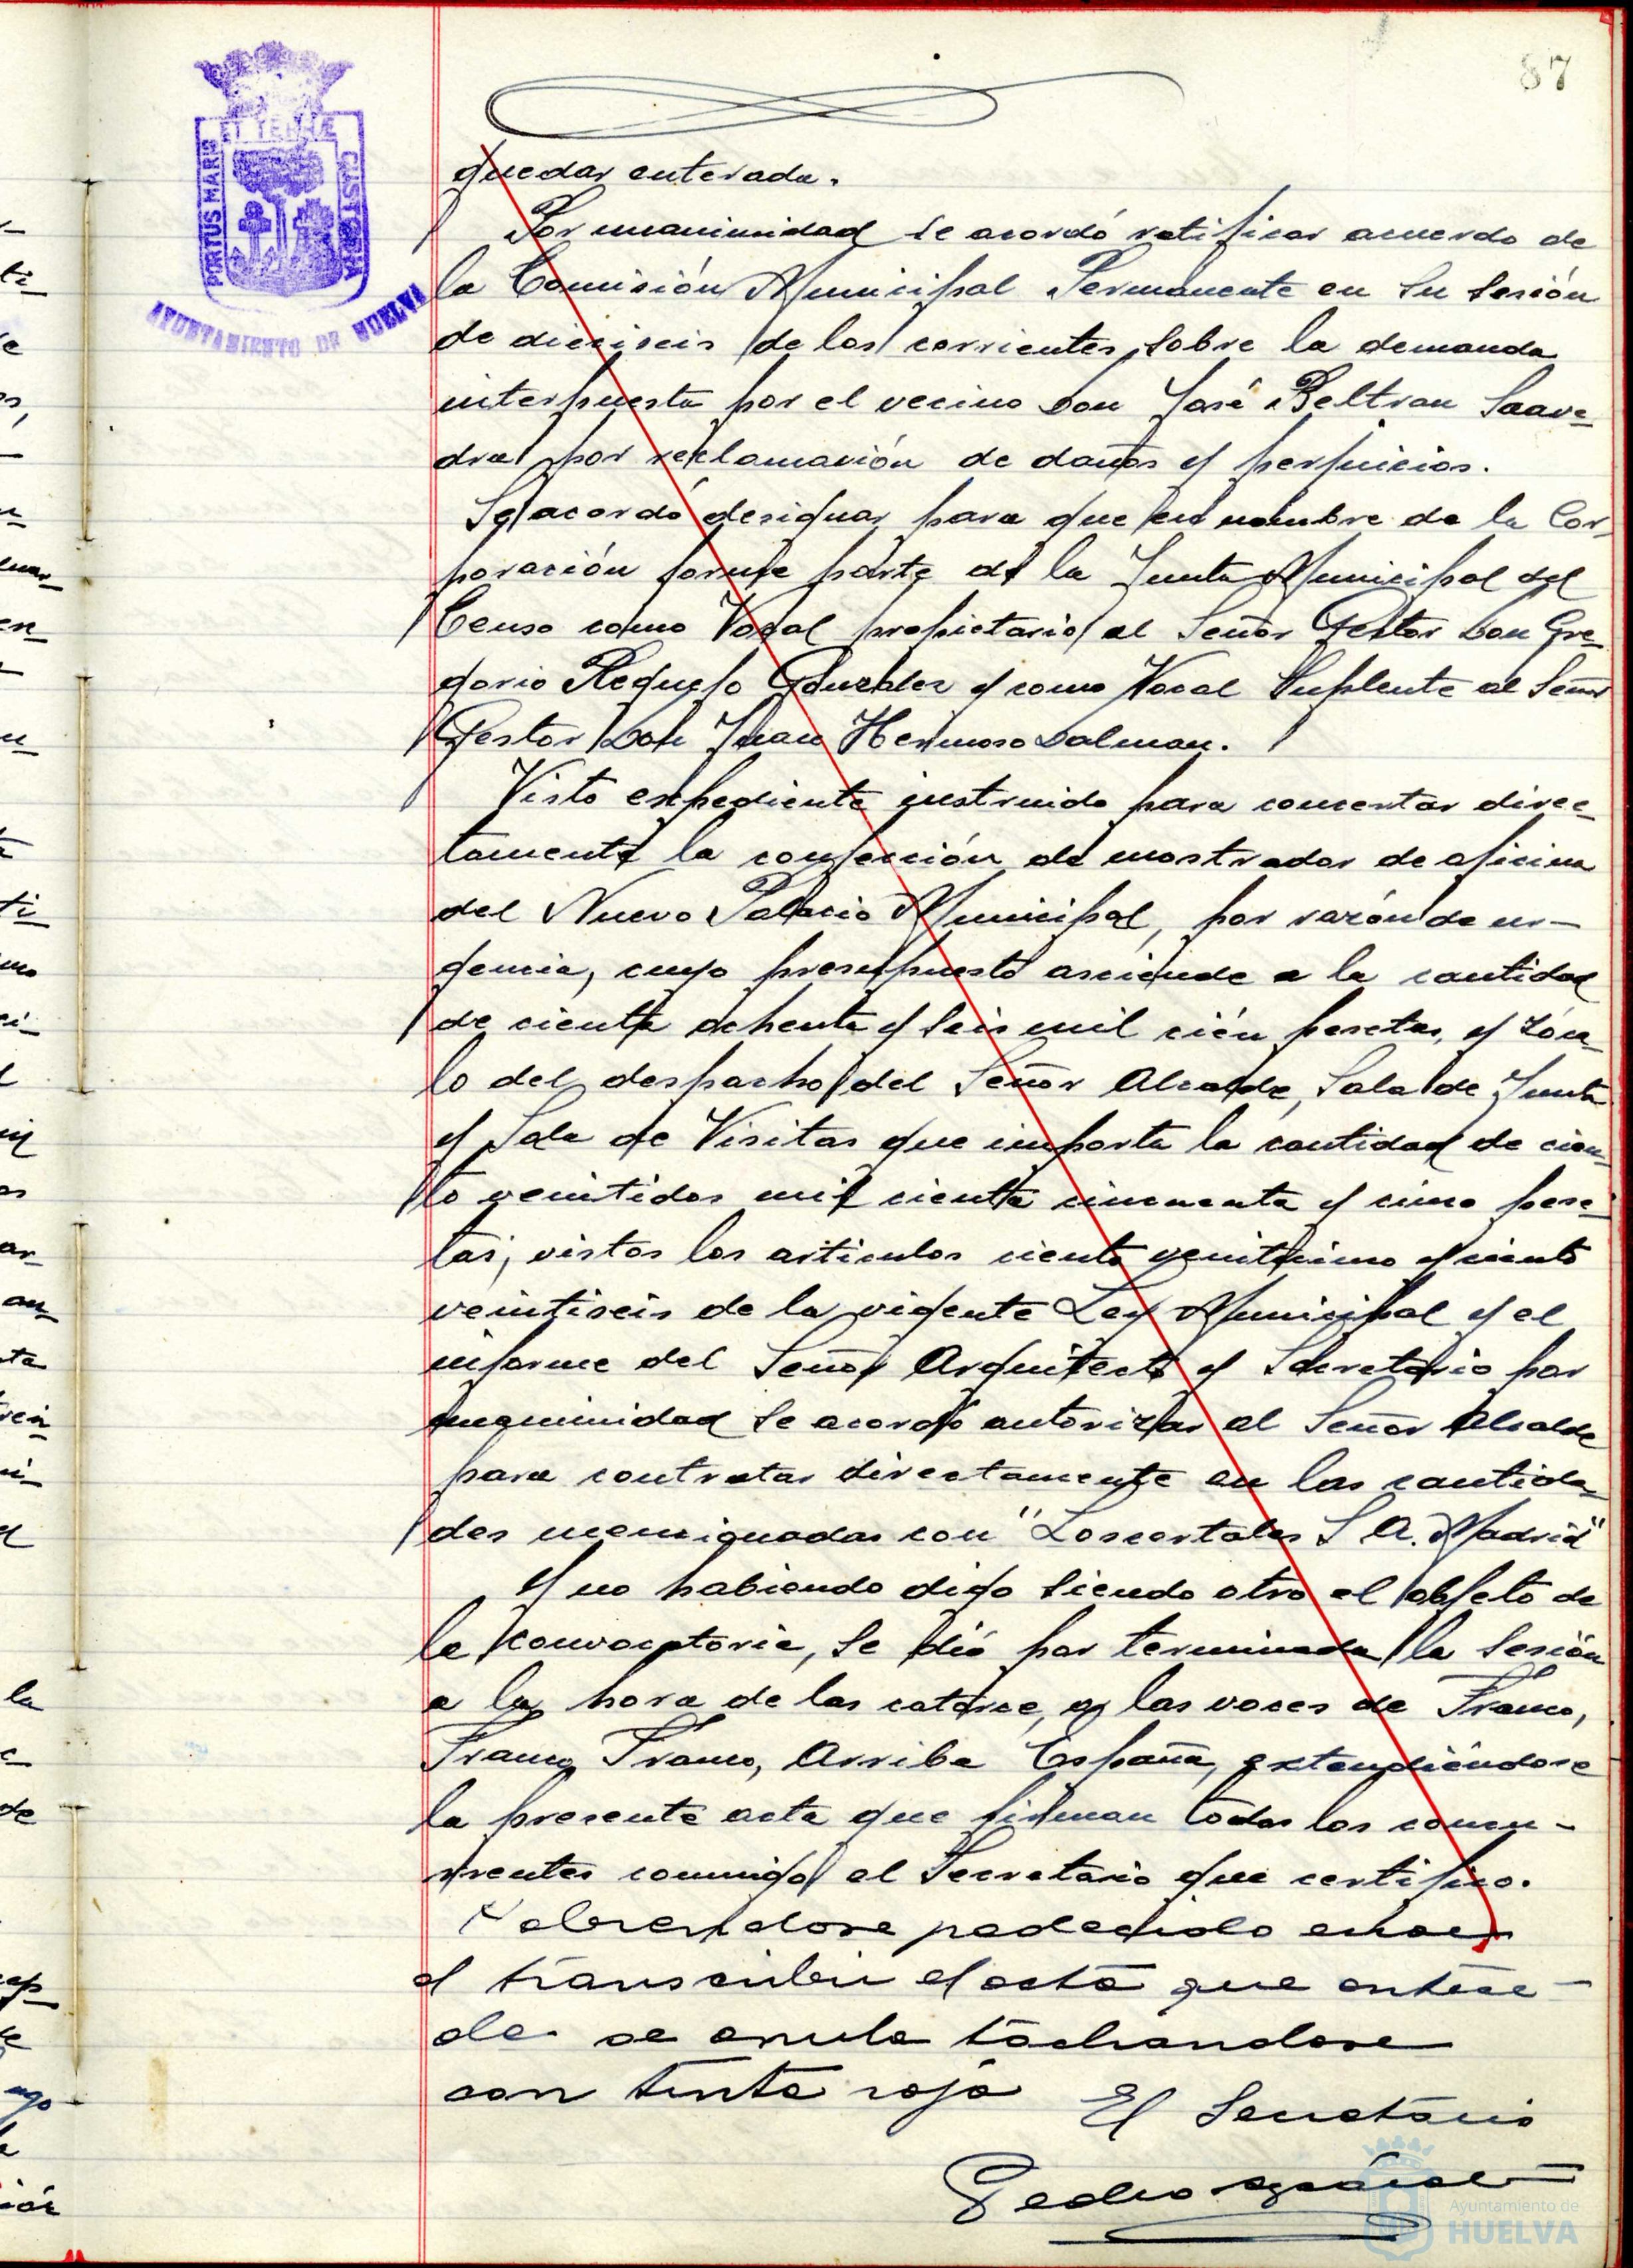 87
PORTUS MARIS ET TERRAE CUSTODIA
AYUNTAMIENTO DE HUELVA
quedar enterada.
Por unanimidad se acordó ratificar acuerdo de
la Comisión Municipal Permanente en su sesión
de dieciseis de los corrientes, sobre la demanda
interpuesta por el vecino Don José Beltran Saave-
dra por reclamación de daños y perjuicios.
Se acordó designar para que en nombre de la Cor-
poración forme parte de la Junta Municipal del
Censo como Vocal propietario al Señor Gestor Don Gre-
gorio Requejo Gonzalez y como Vocal Suplente al Señor
Gestor Don Juan Hermoso Dalman.
Visto expediente instruido para concertar direc-
tamente la confección de mostrador de oficina
del Nuevo Palacio Municipal, por razón de ur-
gencia, cuyo presupuesto asciende a la cantidad
de ciento ochenta y seis mil cién pesetas, y zóca-
lo del despacho del Señor Alcalde, Sala de Junta
y Sala de Visitas que importa la cantidad de cien-
to veintidos mil ciento cincuenta y cinco pese-
tas, vistos los articulos ciento veinticinco y ciento
veintiseis de la vigente Ley Municipal y el
informe del Señor Arquitecto y Secretario por
unanimidad se acordó autorizar al Señor Alcalde
para contratar directamente en las cantida-
des mencionadas con "Loscertales S A. Madrid"
Y no habiendo digo siendo otro el objeto de
la convocatoria, se dió por terminada la sesión
a la hora de las catorce, a las voces de Franco,
Franco, Franco, Arriba España, extendiéndose
la presente acta que firman todos los concu-
rrentes conmigo el Secretario que certifico.
Habiendose padecido error
al transcribir el acta que antece-
de se anula tachandose
con tinta roja El Secretario
Pedro
Ayuntamiento de
HUELVA